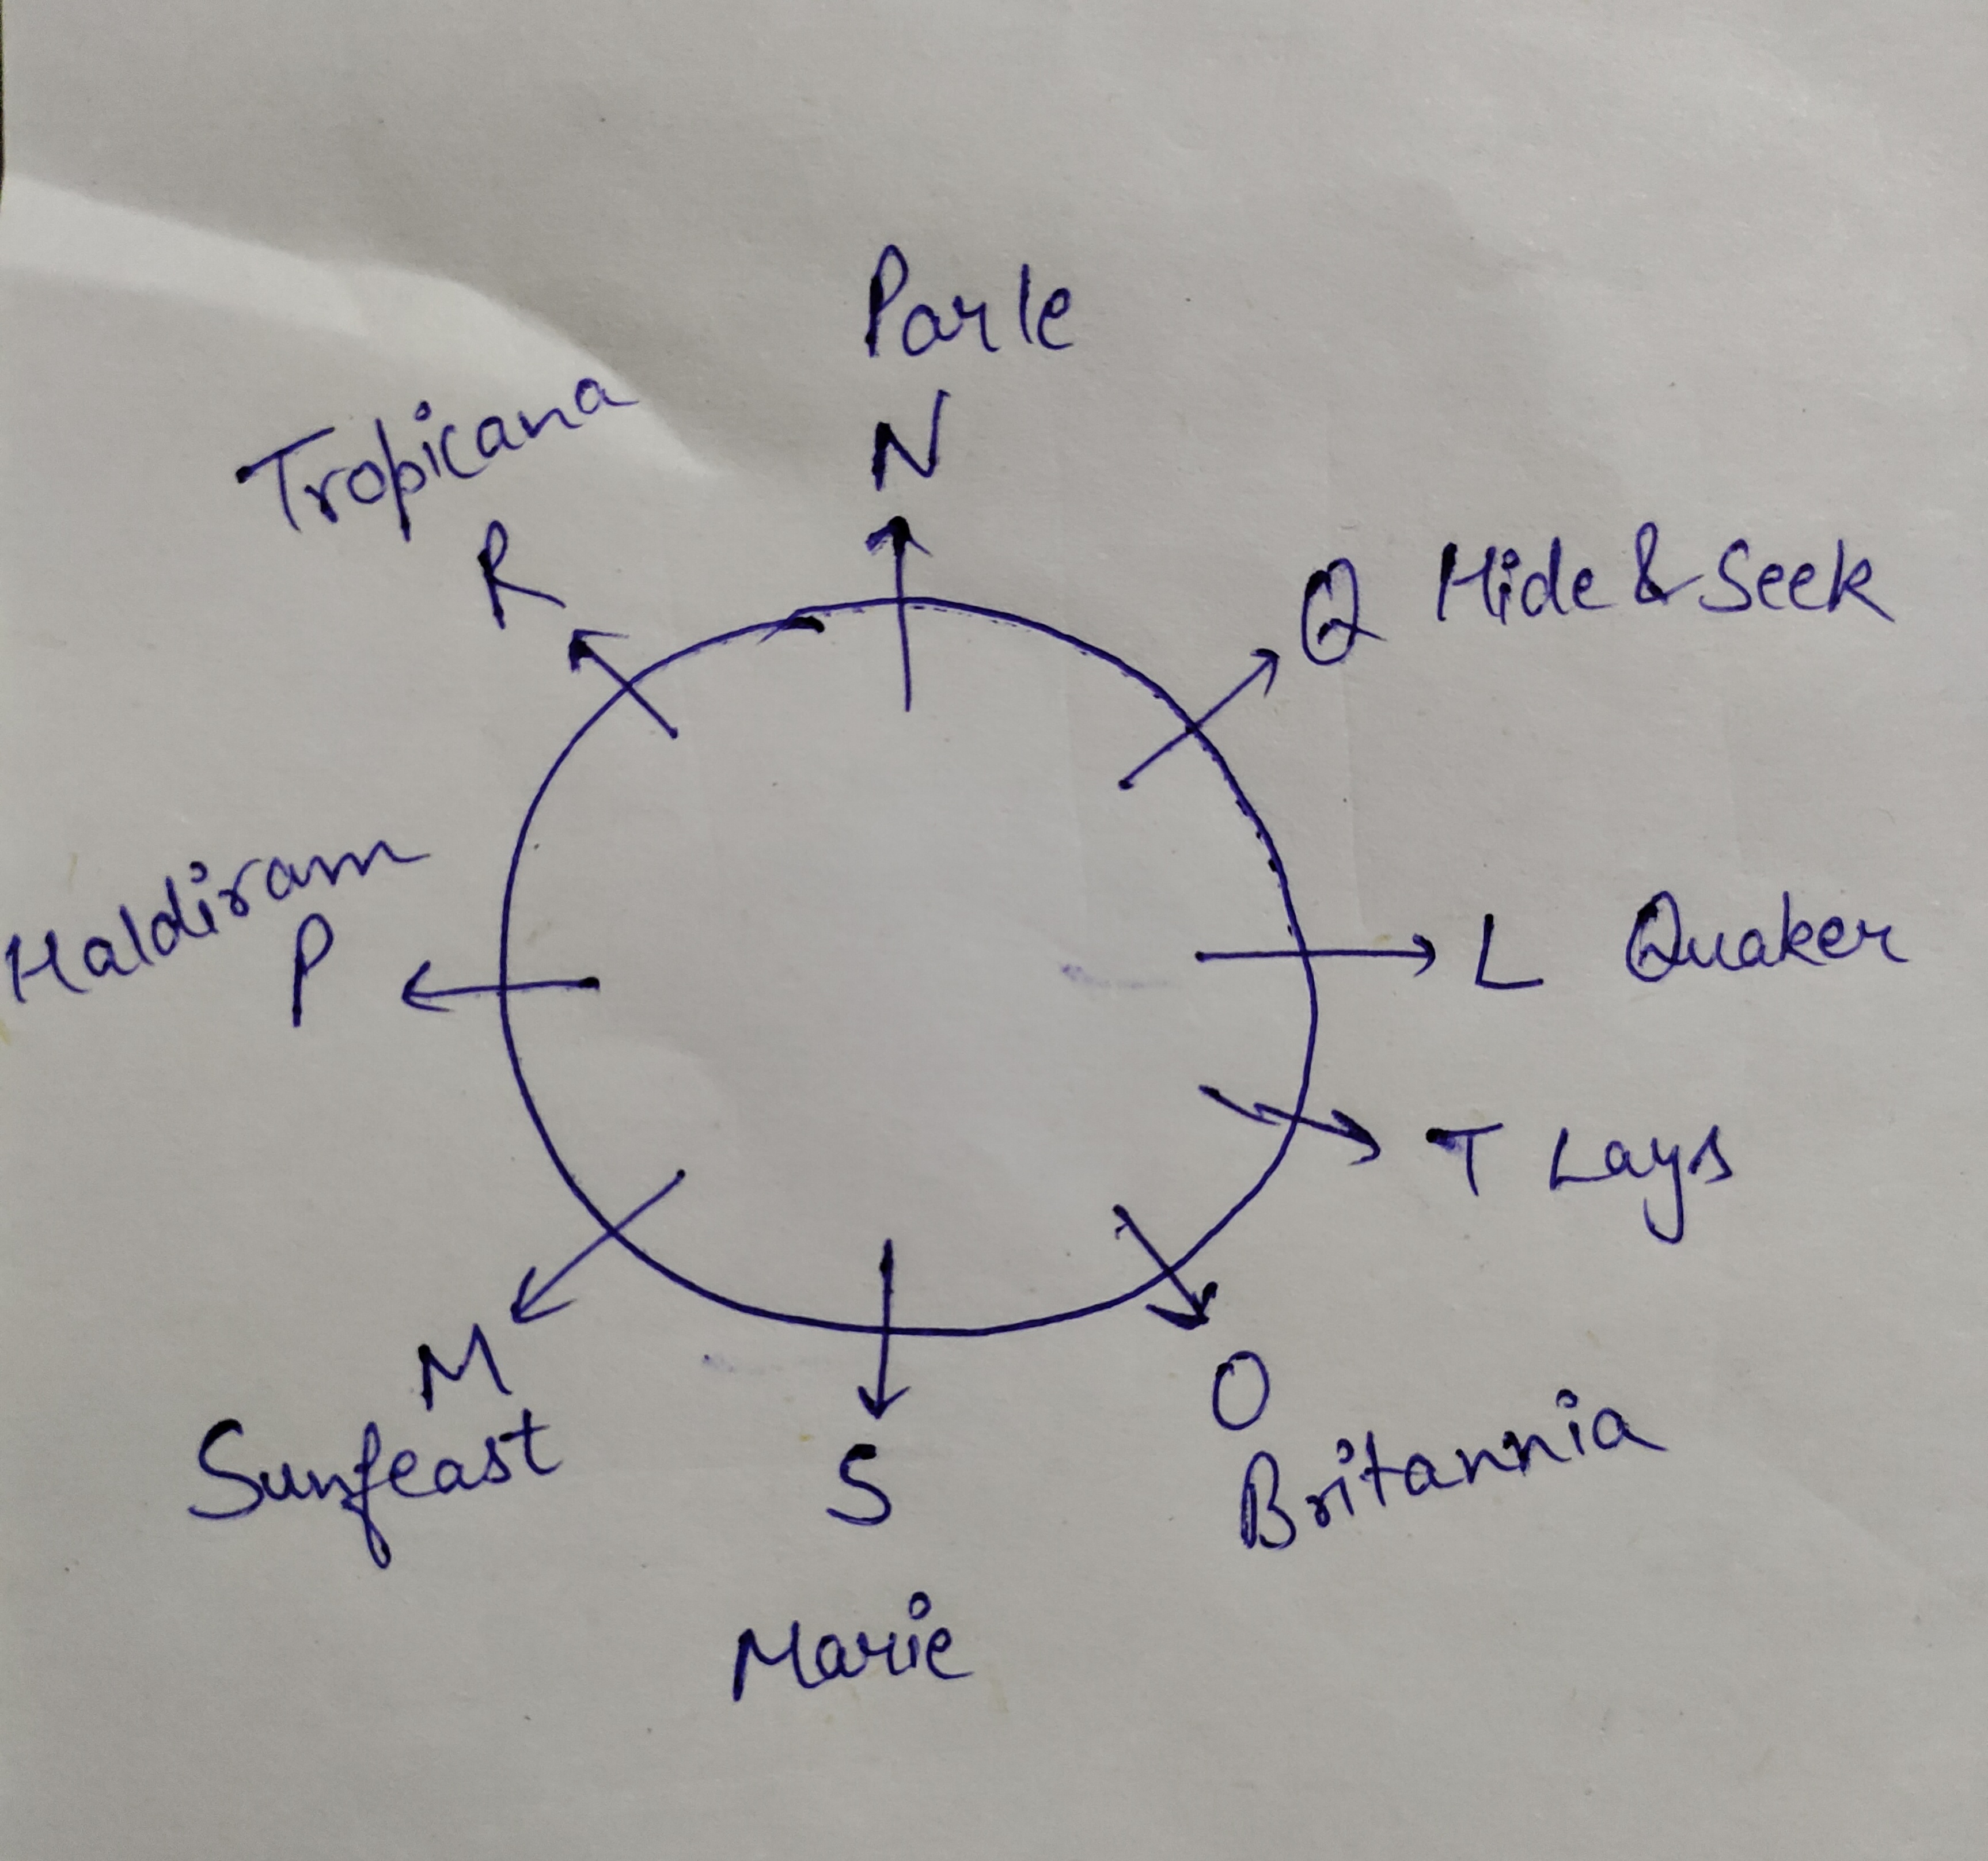 Parle
N
Tropicana
R
Q Hide & Seek
Haldiram
P
L Quaker
T Lays
M
Sunfeast
S
Marie
O
Britannia